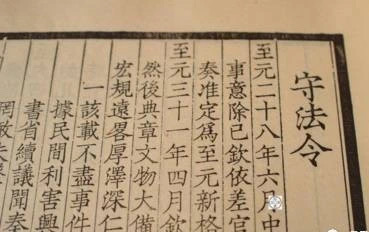 守法令
至元二十八年六月中
事意除已欽依差官
奏准定為至元新格
至元三十一年四月欽
然後典章文物大備
宏規遠畧厚澤深仁
一該載不盡事件
據民間利害興
書省續議聞奏
罔敢